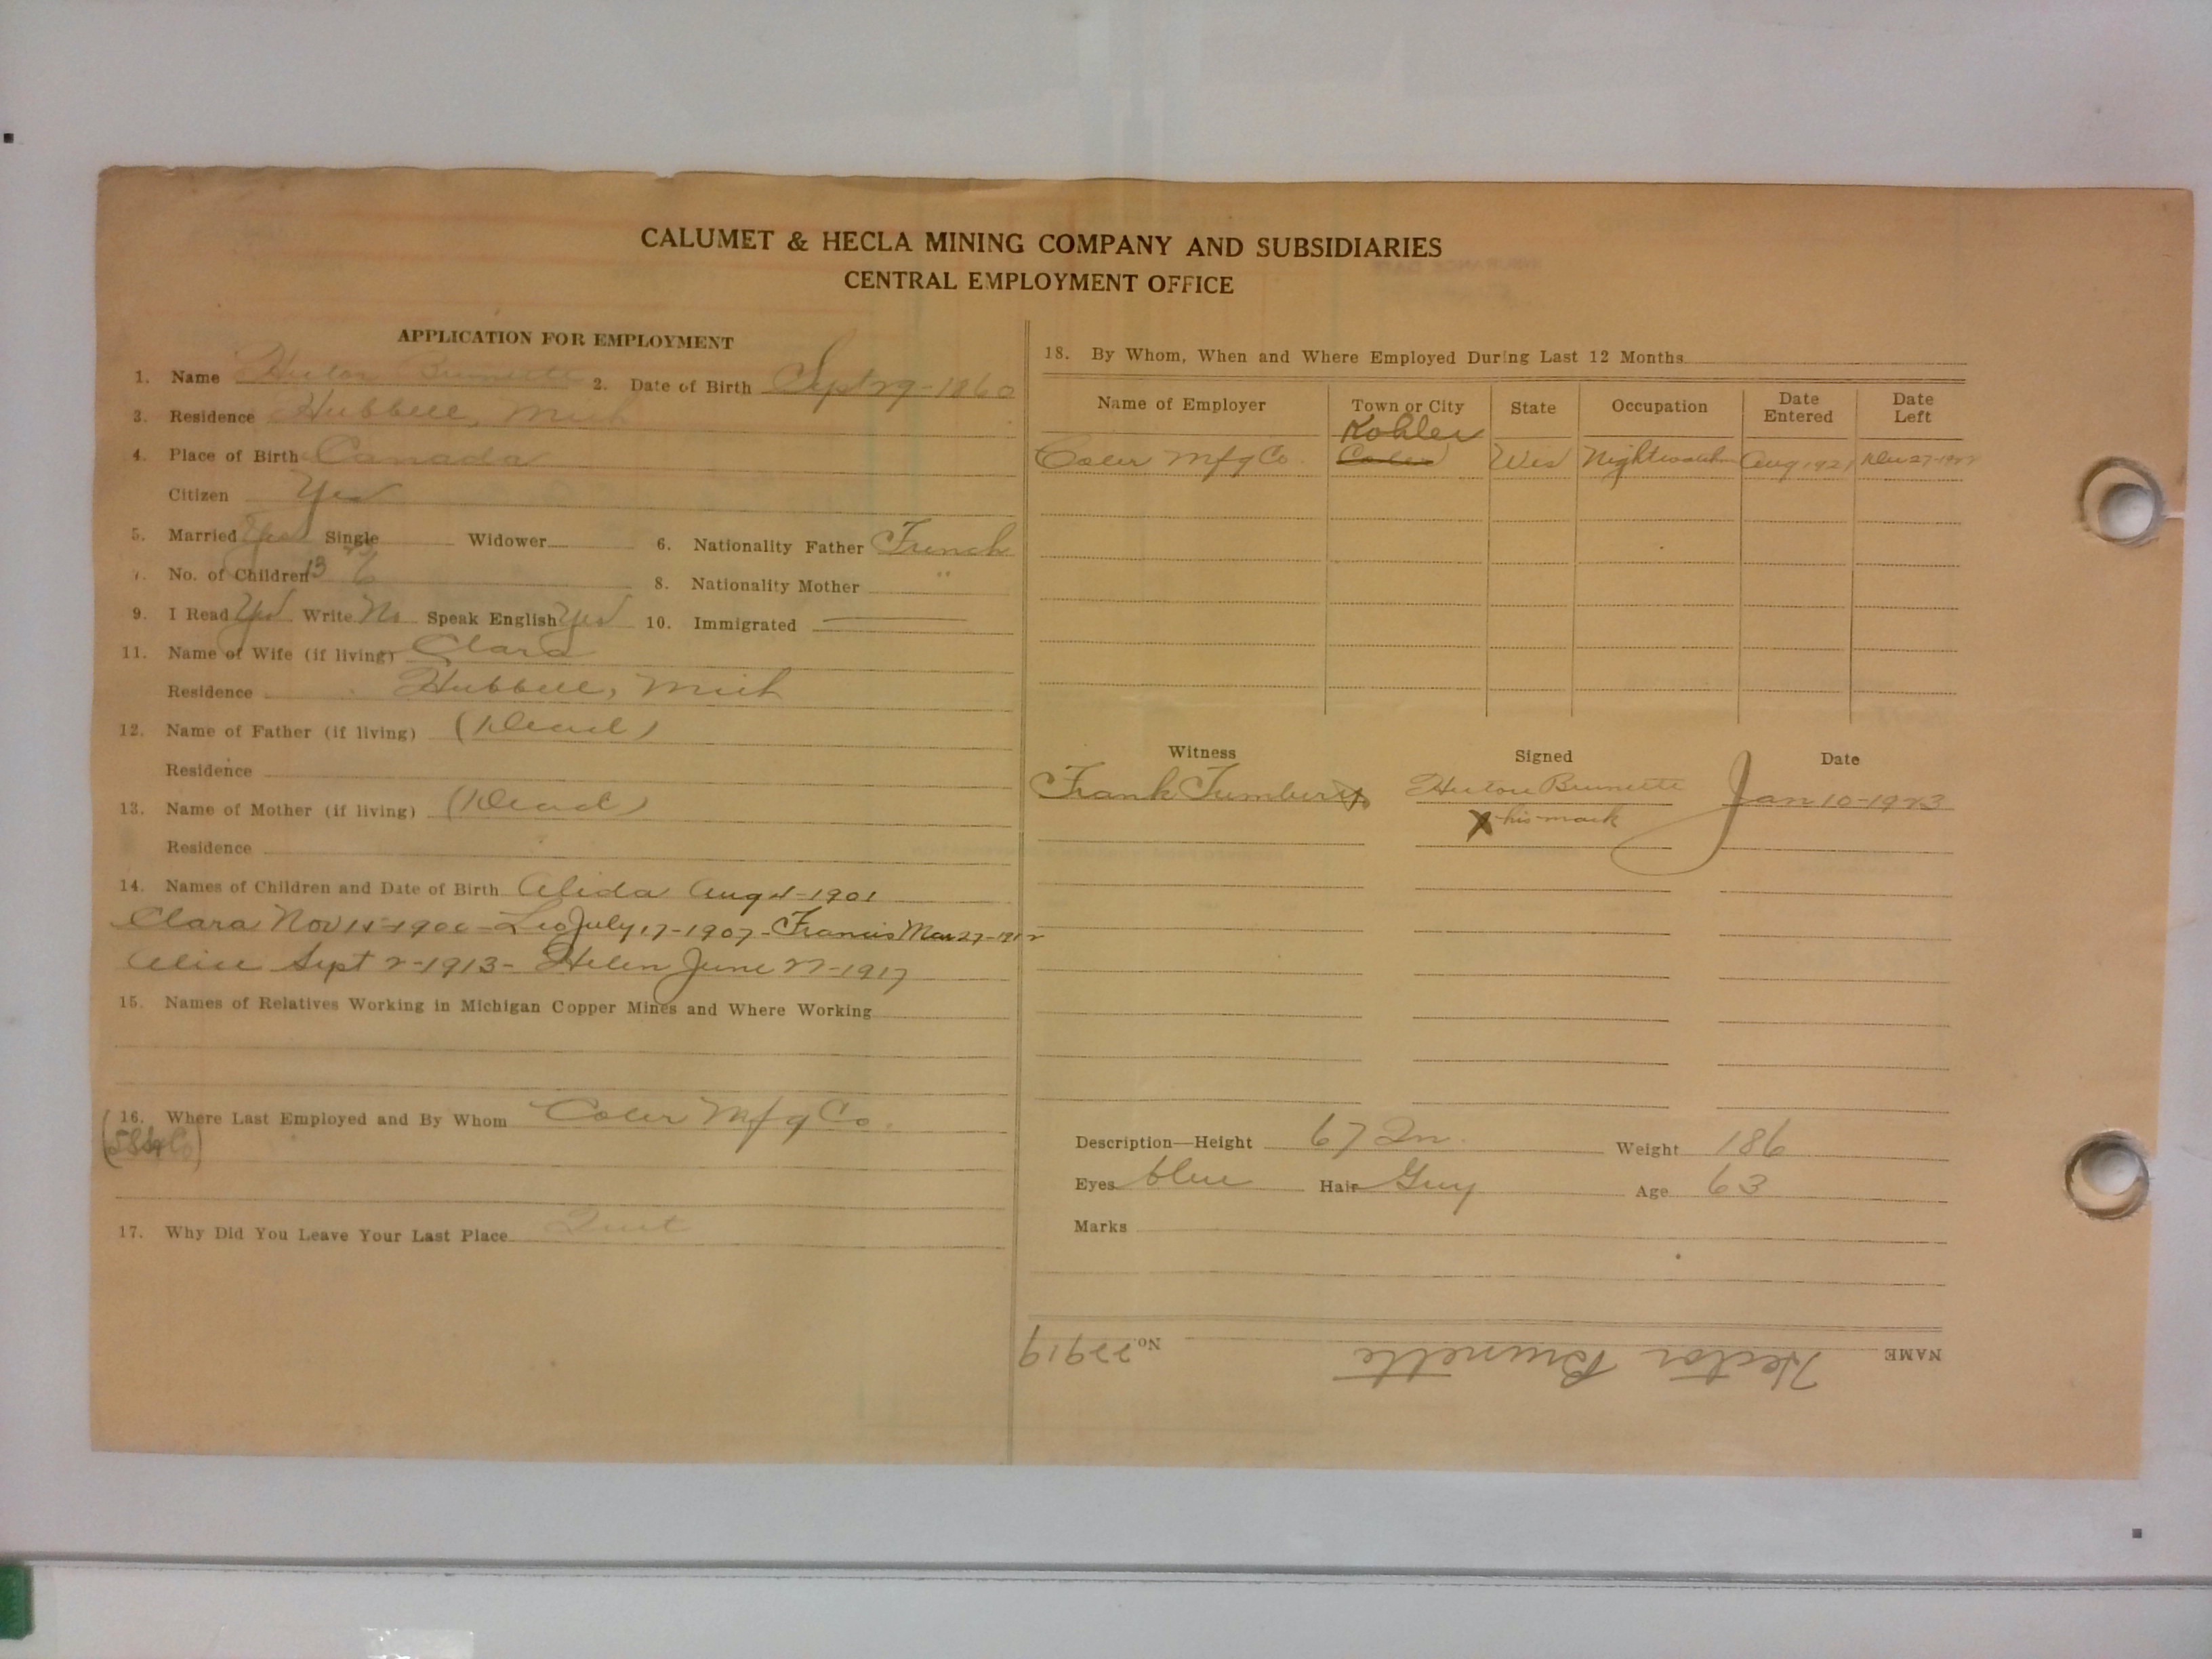 CALUMET & HECLA MINING COMPANY AND SUBSIDIARIES
CENTRAL EMPLOYMENT OFFICE
APPLICATION FOR EMPLOYMENT
1. Name Hector Brunette 2. Date of Birth Sept 29-1860
3. Residence Hubbell, Mich
4. Place of Birth Canada
Citizen Yes
5. Married Yes Single Widower 6. Nationality Father French
7. No. of Children 13 6 8. Nationality Mother "
9. I Read Yes Write No Speak English Yes 10. Immigrated
11. Name of Wife (if living) Clara
Residence Hubbell, Mich
12. Name of Father (if living) (Dead)
Residence
13. Name of Mother (if living) (Dead)
Residence
14. Names of Children and Date of Birth Alida Aug 1-1901
Clara Nov - Leo July 17-1907 - Francis Mar 27-1912
Alice Sept 2-1913 - Helen June 27-1917
15. Names of Relatives Working in Michigan Copper Mines and Where Working
16. Where Last Employed and By Whom Coler Mfg Co.
17. Why Did You Leave Your Last Place Quit
18. By Whom, When and Where Employed During Last 12 Months
Name of Employer Town or City State Occupation Date Entered Date Left
Kohler
Coler Mfg Co. Coler Wis Nightwatchm Aug 1921 Dec 27-1922
Witness Signed Date
Frank Hector Brunette Jan 10-1923
X his mark
Description—Height 67 In. Weight 186
Eyes blue Hair Grey Age 63
Marks
NAME Hector Brunette No. 22919